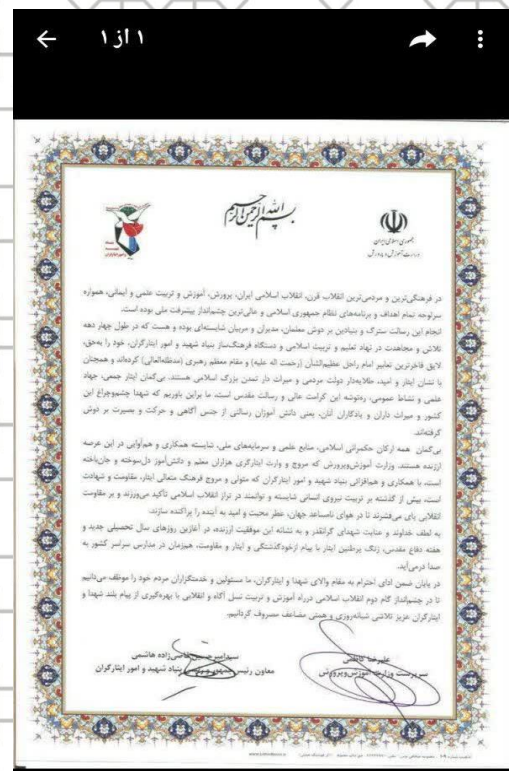 ۱ از ۱
بسم الله الرحمن الرحیم
جمهوری اسلامی ایران
وزارت آموزش و پرورش
در فرهنگی‌ترین و مردمی‌ترین انقلاب قرن، انقلاب اسلامی ایران، پرورش، آموزش و تربیت علمی و ایمانی، همواره
سرلوحه تمام اهداف و برنامه‌های نظام جمهوری اسلامی و عالی‌ترین چشم‌انداز پیشرفت ملی بوده است.
انجام این رسالت سترگ و بنیادین بر دوش معلمان، مدیران و مربیان شایسته‌ای بوده و هست که در طول چهار دهه
تلاش و مجاهدت در نهاد تعلیم و تربیت اسلامی و دستگاه فرهنگ‌ساز بنیاد شهید و امور ایثارگران، خود را به‌حق،
لایق فاخرترین تعابیر امام راحل عظیم‌الشأن (رحمت اله علیه) و مقام معظم رهبری (مدظله‌العالی) کرده‌اند و همچنان
با نشان ایثار و امید، طلایه‌دار دولت مردمی و میراث دار تمدن بزرگ اسلامی هستند. بی‌گمان ایثار جمعی، جهاد
علمی و نشاط عمومی، ره‌توشه این کرامت عالی و رسالت مقدس است. ما براین باوریم که شهدا چشم‌وچراغ این
کشور و میراث داران و یادکاران آنان، یعنی دانش آموزان رسالتی از جنس آگاهی و حرکت و بصیرت بر دوش
گرفته‌اند.
بی‌گمان همه ارکان حکمرانی اسلامی، منابع علمی و سرمایه‌های ملی، شایسته همکاری و هم‌آوایی در این عرصه
ارزنده هستند. وزارت آموزش‌وپرورش که مروج و وارث ایثارگری هزاران معلم و دانش‌آموز دل‌سوخته و جان‌باخته
است، با همکاری و هم‌افزائی بنیاد شهید و امور ایثارگران که متولی و مروج فرهنگ متعالی ایثار، مقاومت و شهادت
است، بیش از گذشته بر تربیت نیروی انسانی شایسته و توانمند در تراز انقلاب اسلامی تأکید می‌ورزند و بر مقاومت
انقلابی پای می‌فشرند تا در هوای نامساعد جهان، عطر محبت و امید به آینده را پراکنده سازند.
به لطف خداوند و عنایت شهدای گرانقدر و به نشانه این موفقیت ارزنده، در آغازین روزهای سال تحصیلی جدید و
هفته دفاع مقدس، زنگ پرطنین ایثار با پیام ازخودگذشتگی و ایثار و مقاومت، همزمان در مدارس سراسر کشور به
صدا درمی‌آید.
در پایان ضمن ادای احترام به مقام والای شهدا و ایثارگران، ما مسئولین و خدمتگزاران مردم خود را موظف می‌دانیم
تا در چشم‌انداز گام دوم انقلاب اسلامی درراه آموزش و تربیت نسل آگاه و انقلابی با بهره‌گیری از پیام بلند شهدا و
ایثارگران عزیز تلاشی شبانه‌روزی و همتی مضاعف مصروف گردانیم.
علیرضا کاظمی
سرپرست وزارت آموزش‌وپرورش
سیدامیرحسین قاضی‌زاده هاشمی
معاون رئیس جمهور و رئیس بنیاد شهید و امور ایثارگران